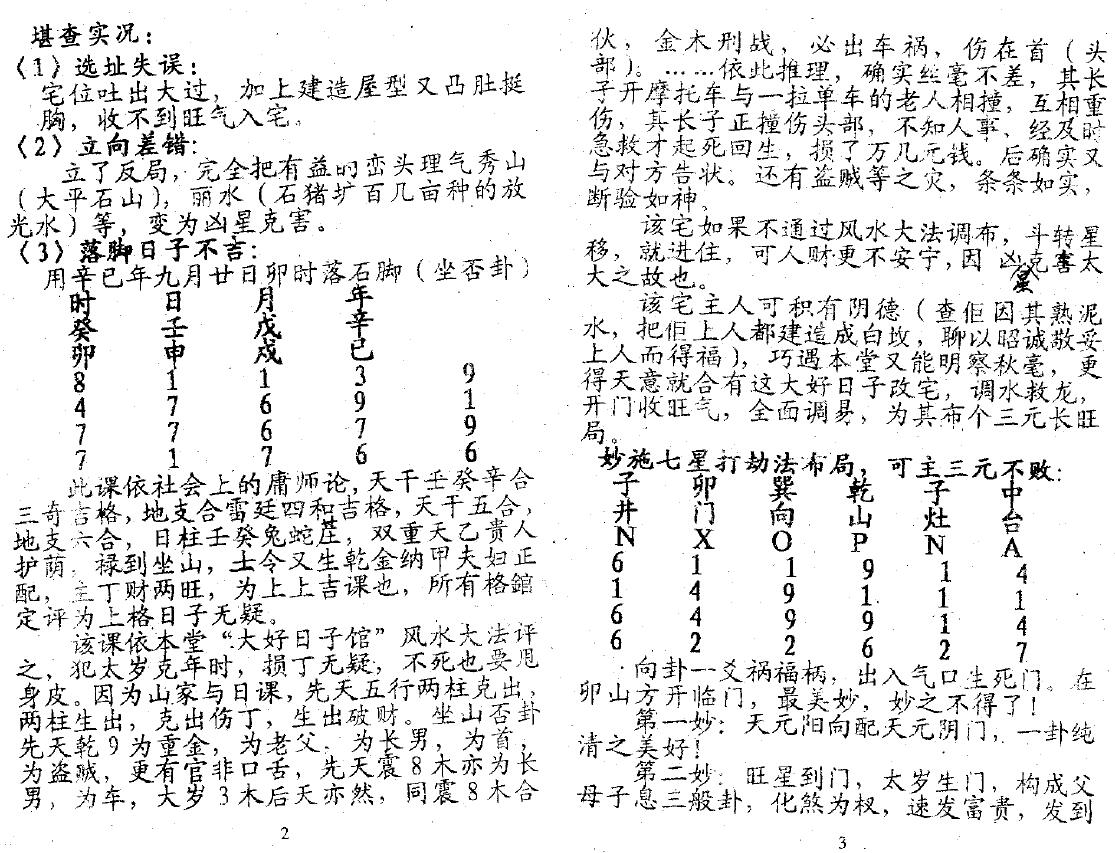 堪查实况：
（1）选址失误：
宅位吐出大过，加上建造屋型又凸肚挺
胸，收不到旺气入宅。
（2）立向差错：
立了反局，完全把有益的峦头理气秀山
（大平石山），丽水（石猪圹百几亩种的放
光水）等，变为凶星克害。
（3）落脚日子不吉：
用辛巳年九月廿日卯时落石脚（坐否卦）
时 日 月 年
癸 壬 戊 辛
卯 申 戌 巳
8 1 1 3 9
4 7 6 9 1
7 7 6 7 9
7 1 7 6 6
此课依社会上的庸师论，天干壬癸辛合
三奇吉格，地支合雷廷四和吉格，天干五合，
地支六合，日柱壬癸兔蛇茳，双重天乙贵人
护荫，禄到坐山，士令又生乾金纳甲夫妇正
配，主丁财两旺，为上上吉课也，所有格錧
定评为上格日子无疑。
该课依本堂“大好日子馆”风水大法评
之，犯太岁克年时，损丁无疑，不死也要甩
身皮。因为山家与日课，先天五行两柱克出，
两柱生出，克出伤丁，生出破财。坐山否卦
先天乾9为重金，为老父，为长男，为首，
为盗贼，更有官非口舌，先天震8木亦为长
男，为车，大岁3木后天亦然，同震8木合
2
伙，金木刑战，必出车祸，伤在首（头
部）。……依此推理，确实丝毫不差，其长
子开摩托车与一拉单车的老人相撞，互相重
伤，其长子正撞伤头部，不知人事，经及时
急救才起死回生，损了万几元钱。后确实又
与对方告状。还有盗贼等之灾，条条如实，
断验如神。
该宅如果不通过风水大法调布，斗转星
移，就进住，可人财更不安宁，因凶星克害太
大之故也。
该宅主人可积有阴德（查佢因其熟泥
水，把佢上人都建造成白坟，聊以昭诚敬妥
上人而得福），巧遇本堂又能明察秋毫，更
得天意就合有这大好日子改宅，调水救龙，
开门收旺气，全面调易，为其布个三元长旺
局。
妙施七星打劫法布局，可主三元不败：
子 卯 巽 乾 子 中
井 门 向 山 灶 台
N X O P N A
6 1 1 9 1 4
1 4 9 1 1 1
6 4 9 9 1 4
6 2 2 6 2 7
向卦一爻祸福柄，出入气口生死门。在
卯山方开临门，最美妙，妙之不得了！
第一妙：天元阳向配天元阴门，一卦纯
清之美好！
第二妙：旺星到门，太岁生门，构成父
母子息三般卦，化煞为权，速发富贵，发到
3